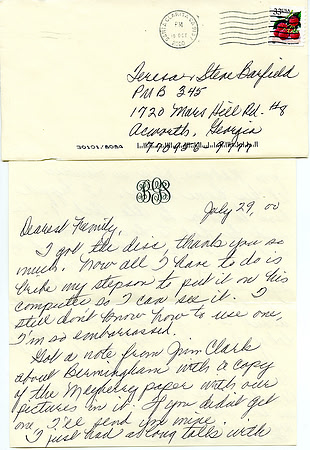 PM
2000
33 USA
Teresa & Steve Barfield
PMB 345
1720 Mars Hill Rd. #8
Acworth, Georgia
30101/8084
BSB
July 29, 00
Dearest Family,
I got the disc, thank you so
much. Now all I have to do is
bribe my stepson to put it on his
computer so I can see it. I
still don't know how to use one,
I'm so embarrassed.
Got a note from Jim Clark
about Birmingham with a copy
of the Mayberry paper with our
pictures in it. If you didn't get
one, I'll send you mine.
I just had a long talk with